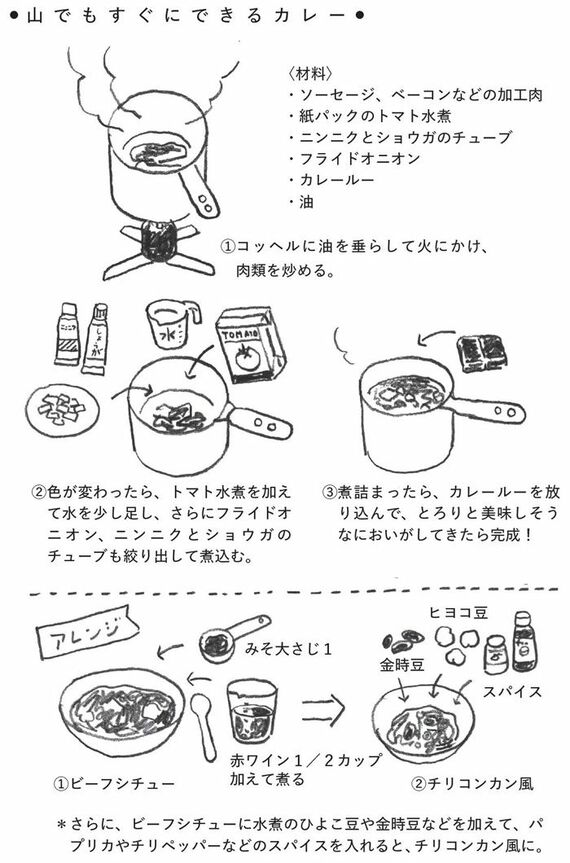 ●山でもすぐにできるカレー●
〈材料〉
・ソーセージ、ベーコンなどの加工肉
・紙パックのトマト水煮
・ニンニクとショウガのチューブ
・フライドオニオン
・カレールー
・油
①コッヘルに油を垂らして火にかけ、
肉類を炒める。
ニンニク
しょうが
水
TOMATO
②色が変わったら、トマト水煮を加え
て水を少し足し、さらにフライドオ
ニオン、ニンニクとショウガの
チューブも絞り出して煮込む。
③煮詰まったら、カレールーを放
り込んで、とろりと美味しそう
なにおいがしてきたら完成！
アレンジ
みそ大さじ１
赤ワイン１／２カップ
加えて煮る
①ビーフシチュー
ヒヨコ豆
金時豆
スパイス
②チリコンカン風
＊さらに、ビーフシチューに水煮のひよこ豆や金時豆などを加えて、パ
プリカやチリペッパーなどのスパイスを入れると、チリコンカン風に。